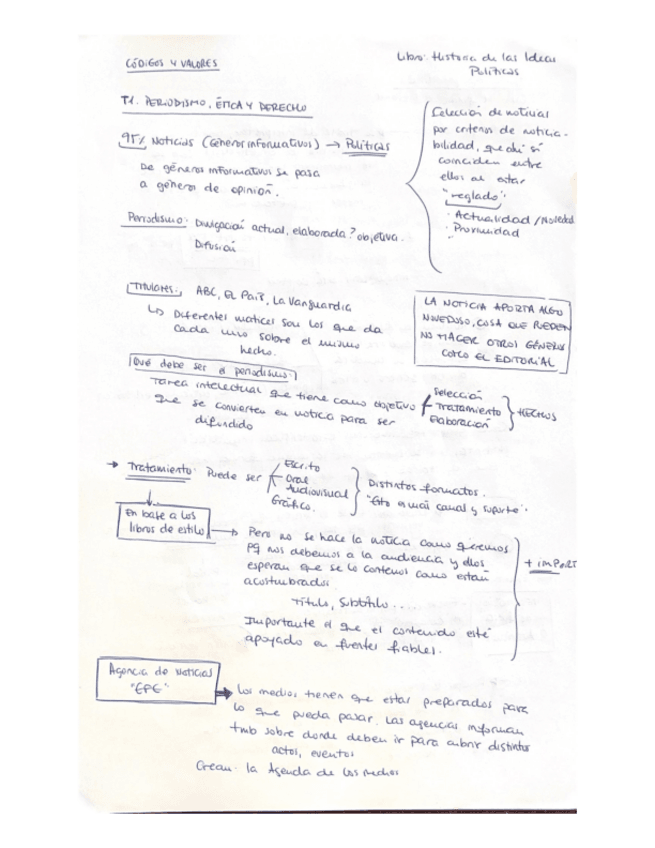 CÓDIGOS Y VALORES
Libro: Historia de las Ideas
Políticas
T1. PERIODISMO, ÉTICA Y DERECHO
95% Noticias (Géneros informativos) → Políticas
De géneros informativos se pasa
a géneros de opinión.
Selección de noticias
por criterios de noticia-
bilidad, que ahí sí
coinciden entre
ellos al estar
"reglado".
· Actualidad / Novedad
· Proximidad
Periodismo: Divulgación actual, elaborada? objetiva.
Difusión
Titulares: ABC, EL PAÍS, La Vanguardia
↳ Diferentes matices son los que da
cada uno sobre el mismo
hecho.
LA NOTICIA APORTA ALGO
NOVEDOSO, COSA QUE PUEDEN
NO HACER OTROS GÉNEROS
COMO EL EDITORIAL
Qué debe ser el periodismo:
Tarea intelectual que tiene como objetivo
Selección
Tratamiento
Elaboración
HECHOS
que se convierten en noticia para ser
difundido
→ Tratamiento: Puede ser
Escrito
Oral
Audiovisual
Gráfico.
Distintos formatos.
canal y soporte".
En base a los
libros de estilo
→ Pero no se hace la noticia como queremos
pq nos debemos a la audiencia y ellos
esperan que se lo contemos como están
acostumbrados
Título, Subtítulo ....
Importante el que el contenido esté
apoyado en fuentes fiables.
+ IMPORT
Agencia de Noticias
"EFE"
→ Los medios tienen que estar preparados para
lo que pueda pasar. Las agencias informan
tmb sobre donde deben ir para cubrir distintos
actos, eventos
Crean: la Agenda de los medios